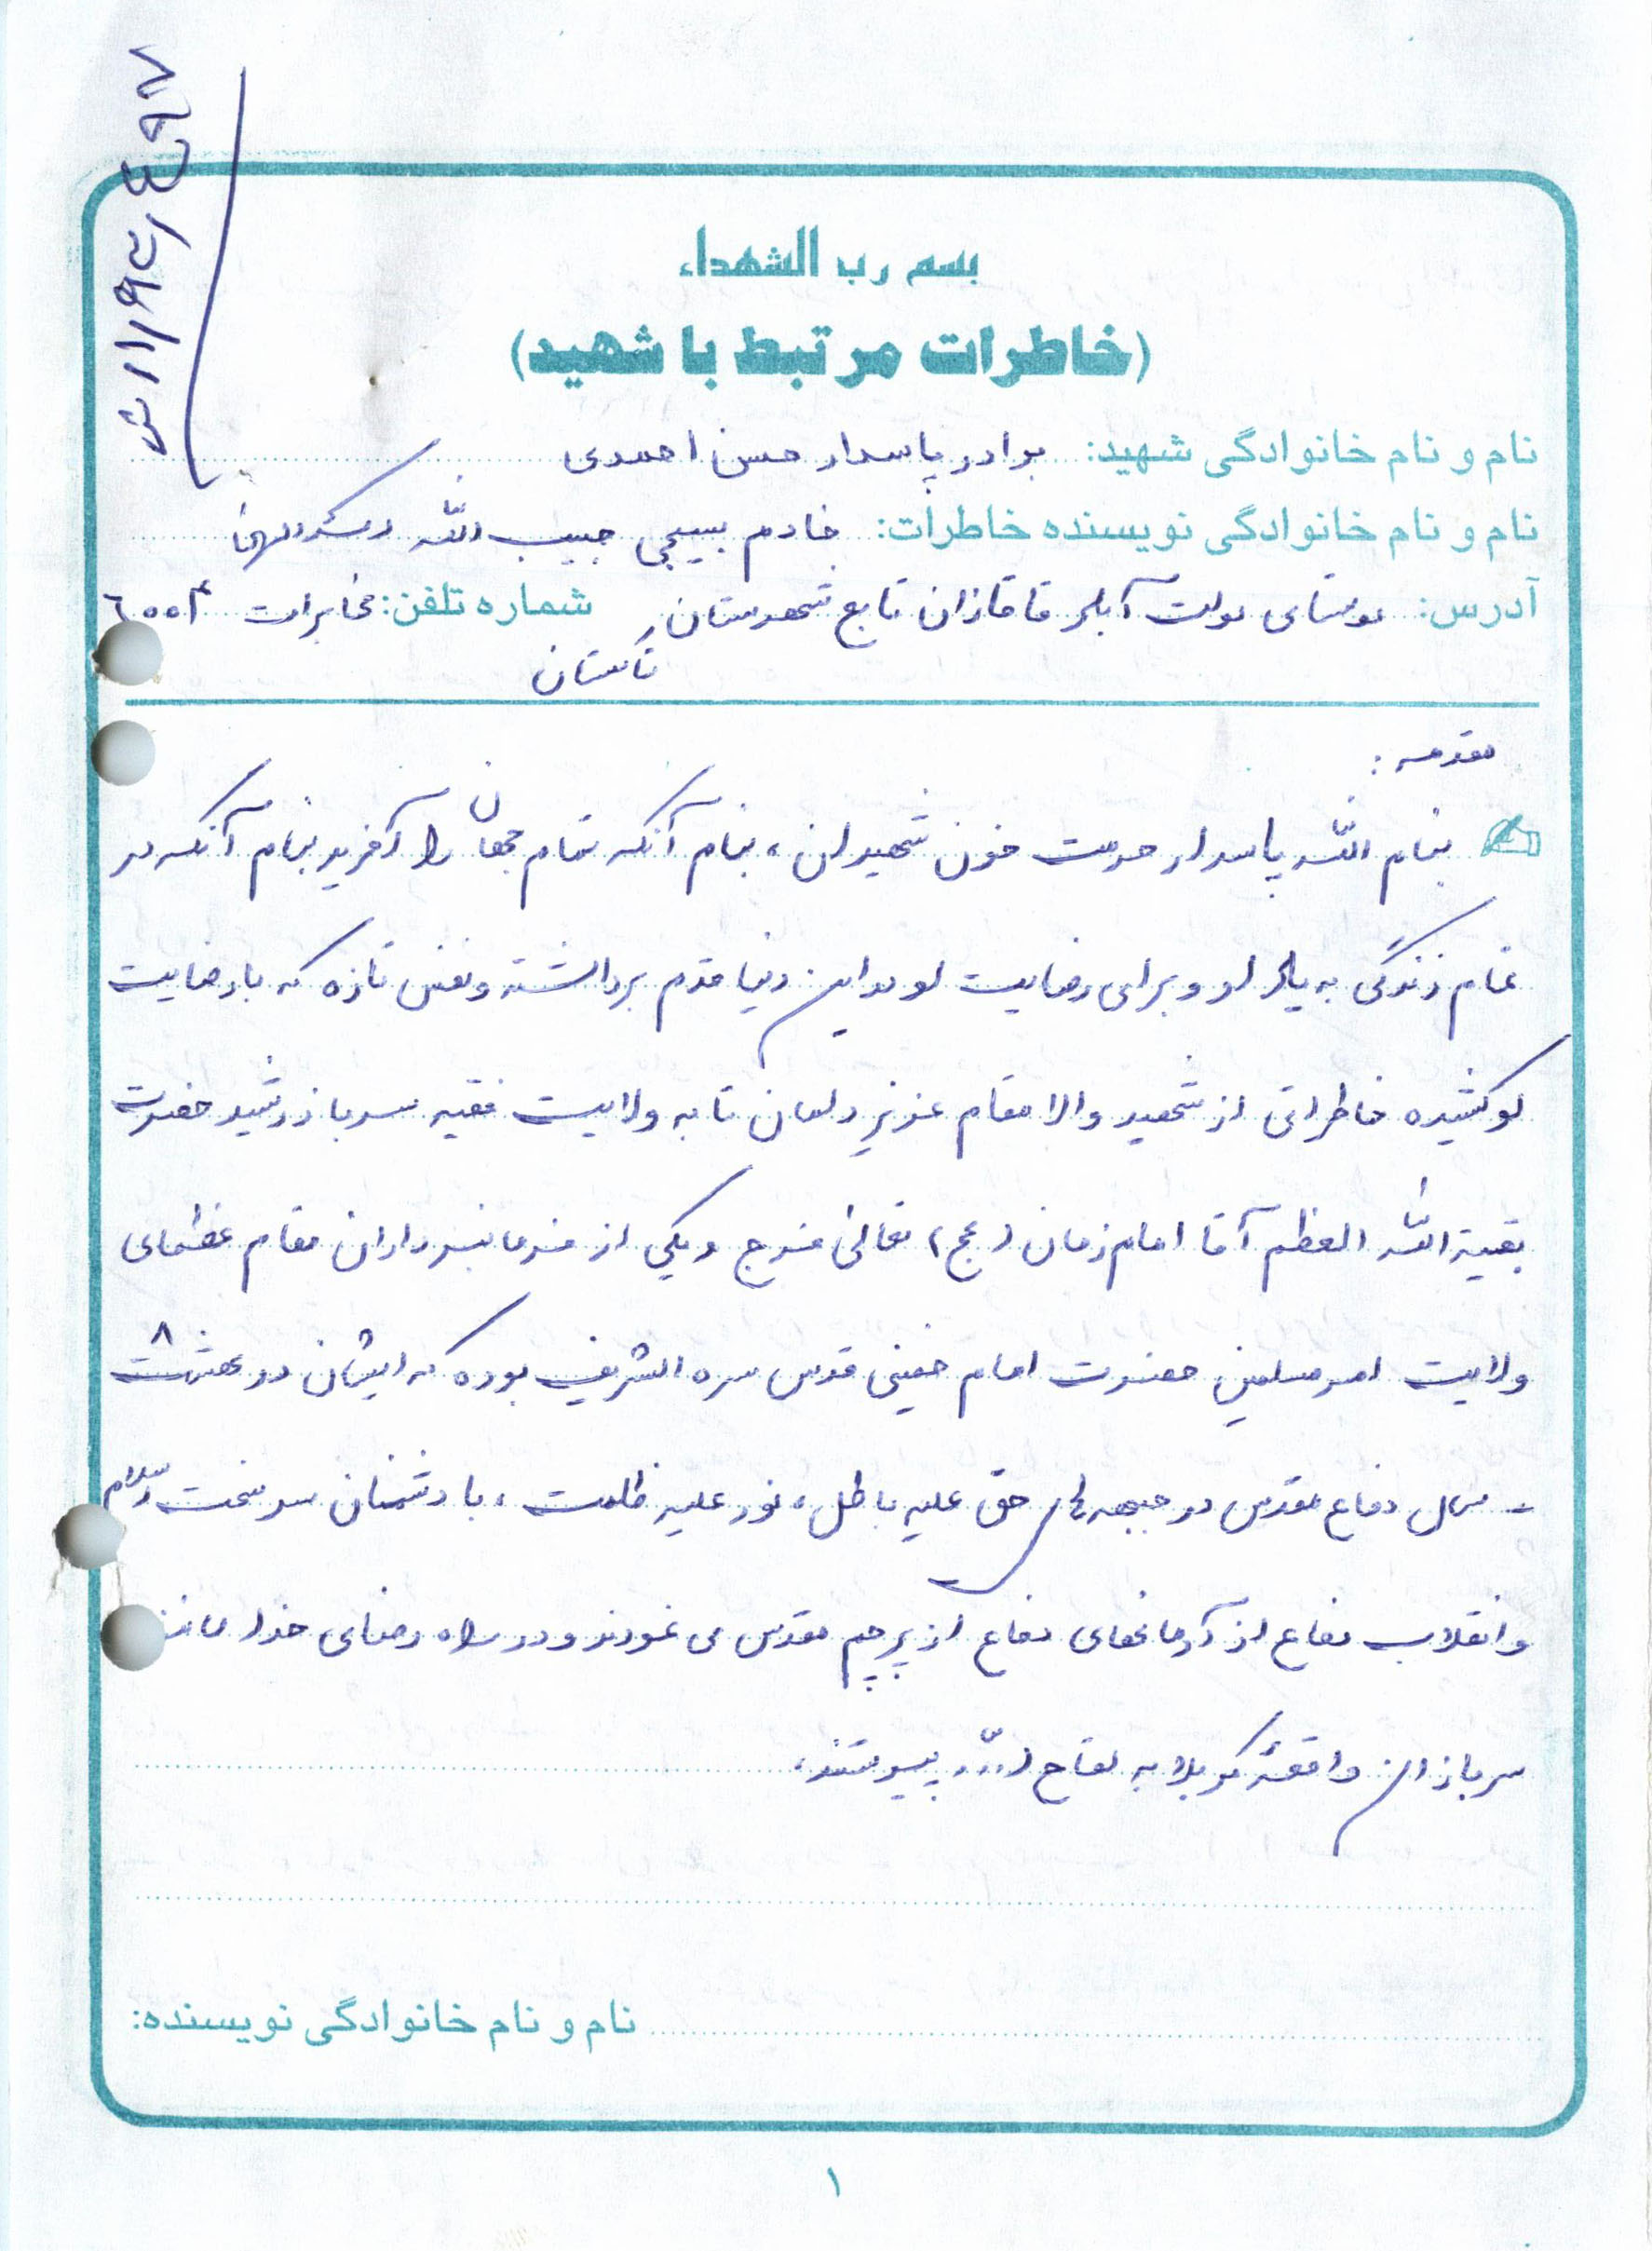 بسم رب الشهداء
(خاطرات مرتبط با شهید)
نام و نام خانوادگی شهید: برادر پاسدار حسن احمدی
نام و نام خانوادگی نویسنده خاطرات: خادم بسیجی حبیب الله
آدرس: روستای دولت آباد قاقازان تابع شهرستان شماره تلفن: مخابرات
تاکستان
مقدمه:
بنام الله پاسدار حرمت خون شهیدان، بنام آنکه تمام جهان را آفرید بنام آنکه در
تمام زندگی به یاد او و برای رضایت او در این دنیا قدم برداشته و نفس تازه که با رضایت
او کشیده خاطراتی از شهید والا مقام عزیز دلمان تا به ولایت فقیه سرباز رشید حضرت
بقیة الله العظم آقا امام زمان (عج) تعالی فرج و یکی از فرمانبرداران مقام عظمای
ولایت امر مسلمین حضرت امام خمینی قدس سره الشریف بوده که ایشان در هشت ۸
- سال دفاع مقدس در جبهه های حق علیه باطل، نور علیه ظلمت، با دشمنان سرسخت اسلام
و انقلاب دفاع از آرمانهای دفاع از پرچم مقدس می نمودند و در راه رضای خدا مانند
سربازان واقعهٔ کربلا به لقاح الله پیوستند.
نام و نام خانوادگی نویسنده:
۱